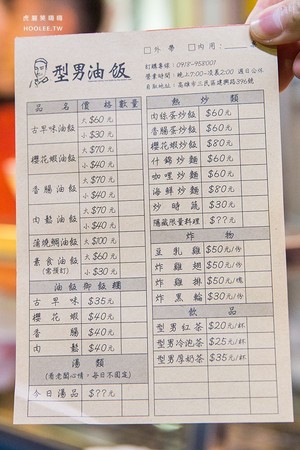 虎麗笑嘻嘻
HOOLEE.TW
型男油飯
□外帶 □內用：
訂購專線：0918-958001
營業時間：晚上7:00~凌晨2:00 週日公休
自取地址：高雄市三民區建興路396號
品名 價格 數量
古早味油飯 大$60元
小$30元
櫻花蝦油飯 大$70元
小$40元
香腸油飯 大$70元
小$40元
肉鬆油飯 大$70元
小$40元
蒲燒鯛油飯 大$100元
素食油飯 (需預訂) 大$60元
小$30元
油飯御飯糰
古早味 $35元
櫻花蝦 $40元
香腸 $40元
肉鬆 $40元
湯類
(看老闆心情，每日不固定)
今日湯品 $??元
熱炒類
肉絲蛋炒飯 $60元
香腸蛋炒飯 $60元
櫻花蝦炒飯 $80元
什錦炒麵 $60元
咖哩炒麵 $60元
海鮮炒麵 $80元
炒時蔬 $30元
隱藏限量料理 $??元
炸物
豆乳雞 $50元/份
炸雞翅 $50元/份
炸雞排 $50元/塊
炸黑輪 $30元/份
飲品
型男紅茶 $20元/杯
型男冷泡茶 $25元/杯
型男厚奶茶 $35元/杯